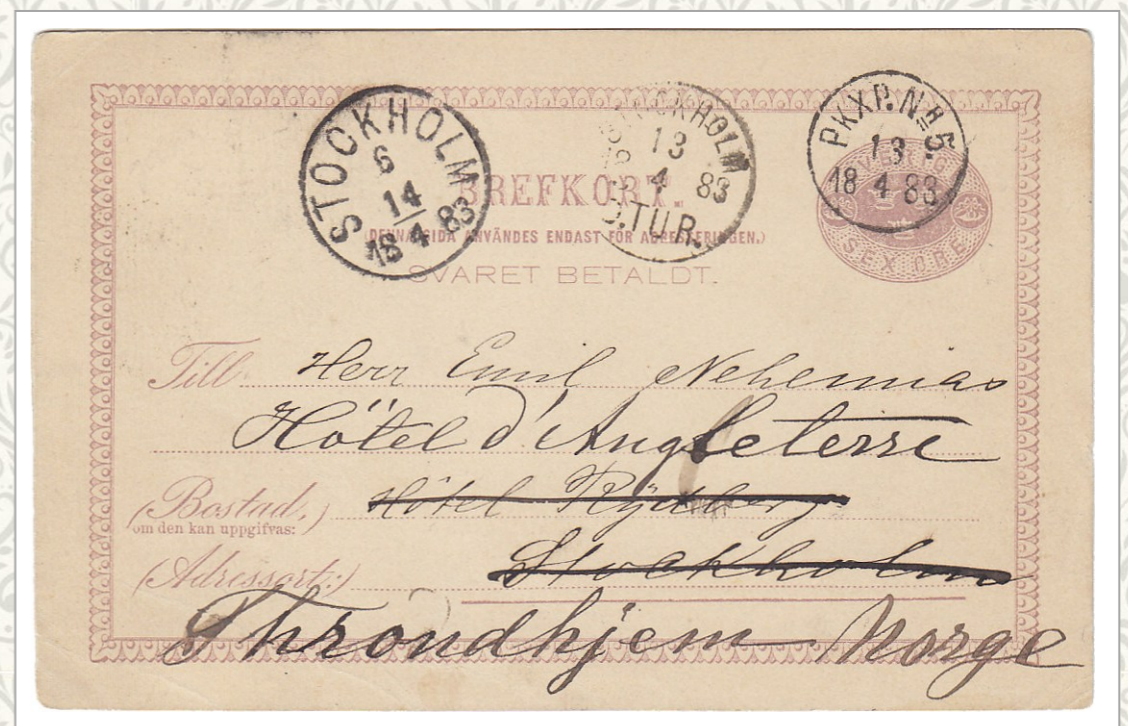 STOCKHOLM
6
14
18 4 83
STOCKHOLM
13
4 83
TUR.
PKXP. No 5
13
18 4 83
SEX ÖRE
BREFKORT.
(DENNA SIDA ANVÄNDES ENDAST FÖR ADRESSERINGEN.)
SVARET BETALDT.
Till Herr Emil Nehemias
Hôtel d'Angleterre
(Bostad,) Hôtel Rydberg
om den kan uppgifvas:
(Adressort:) Stockholm
Throndhjem Norge